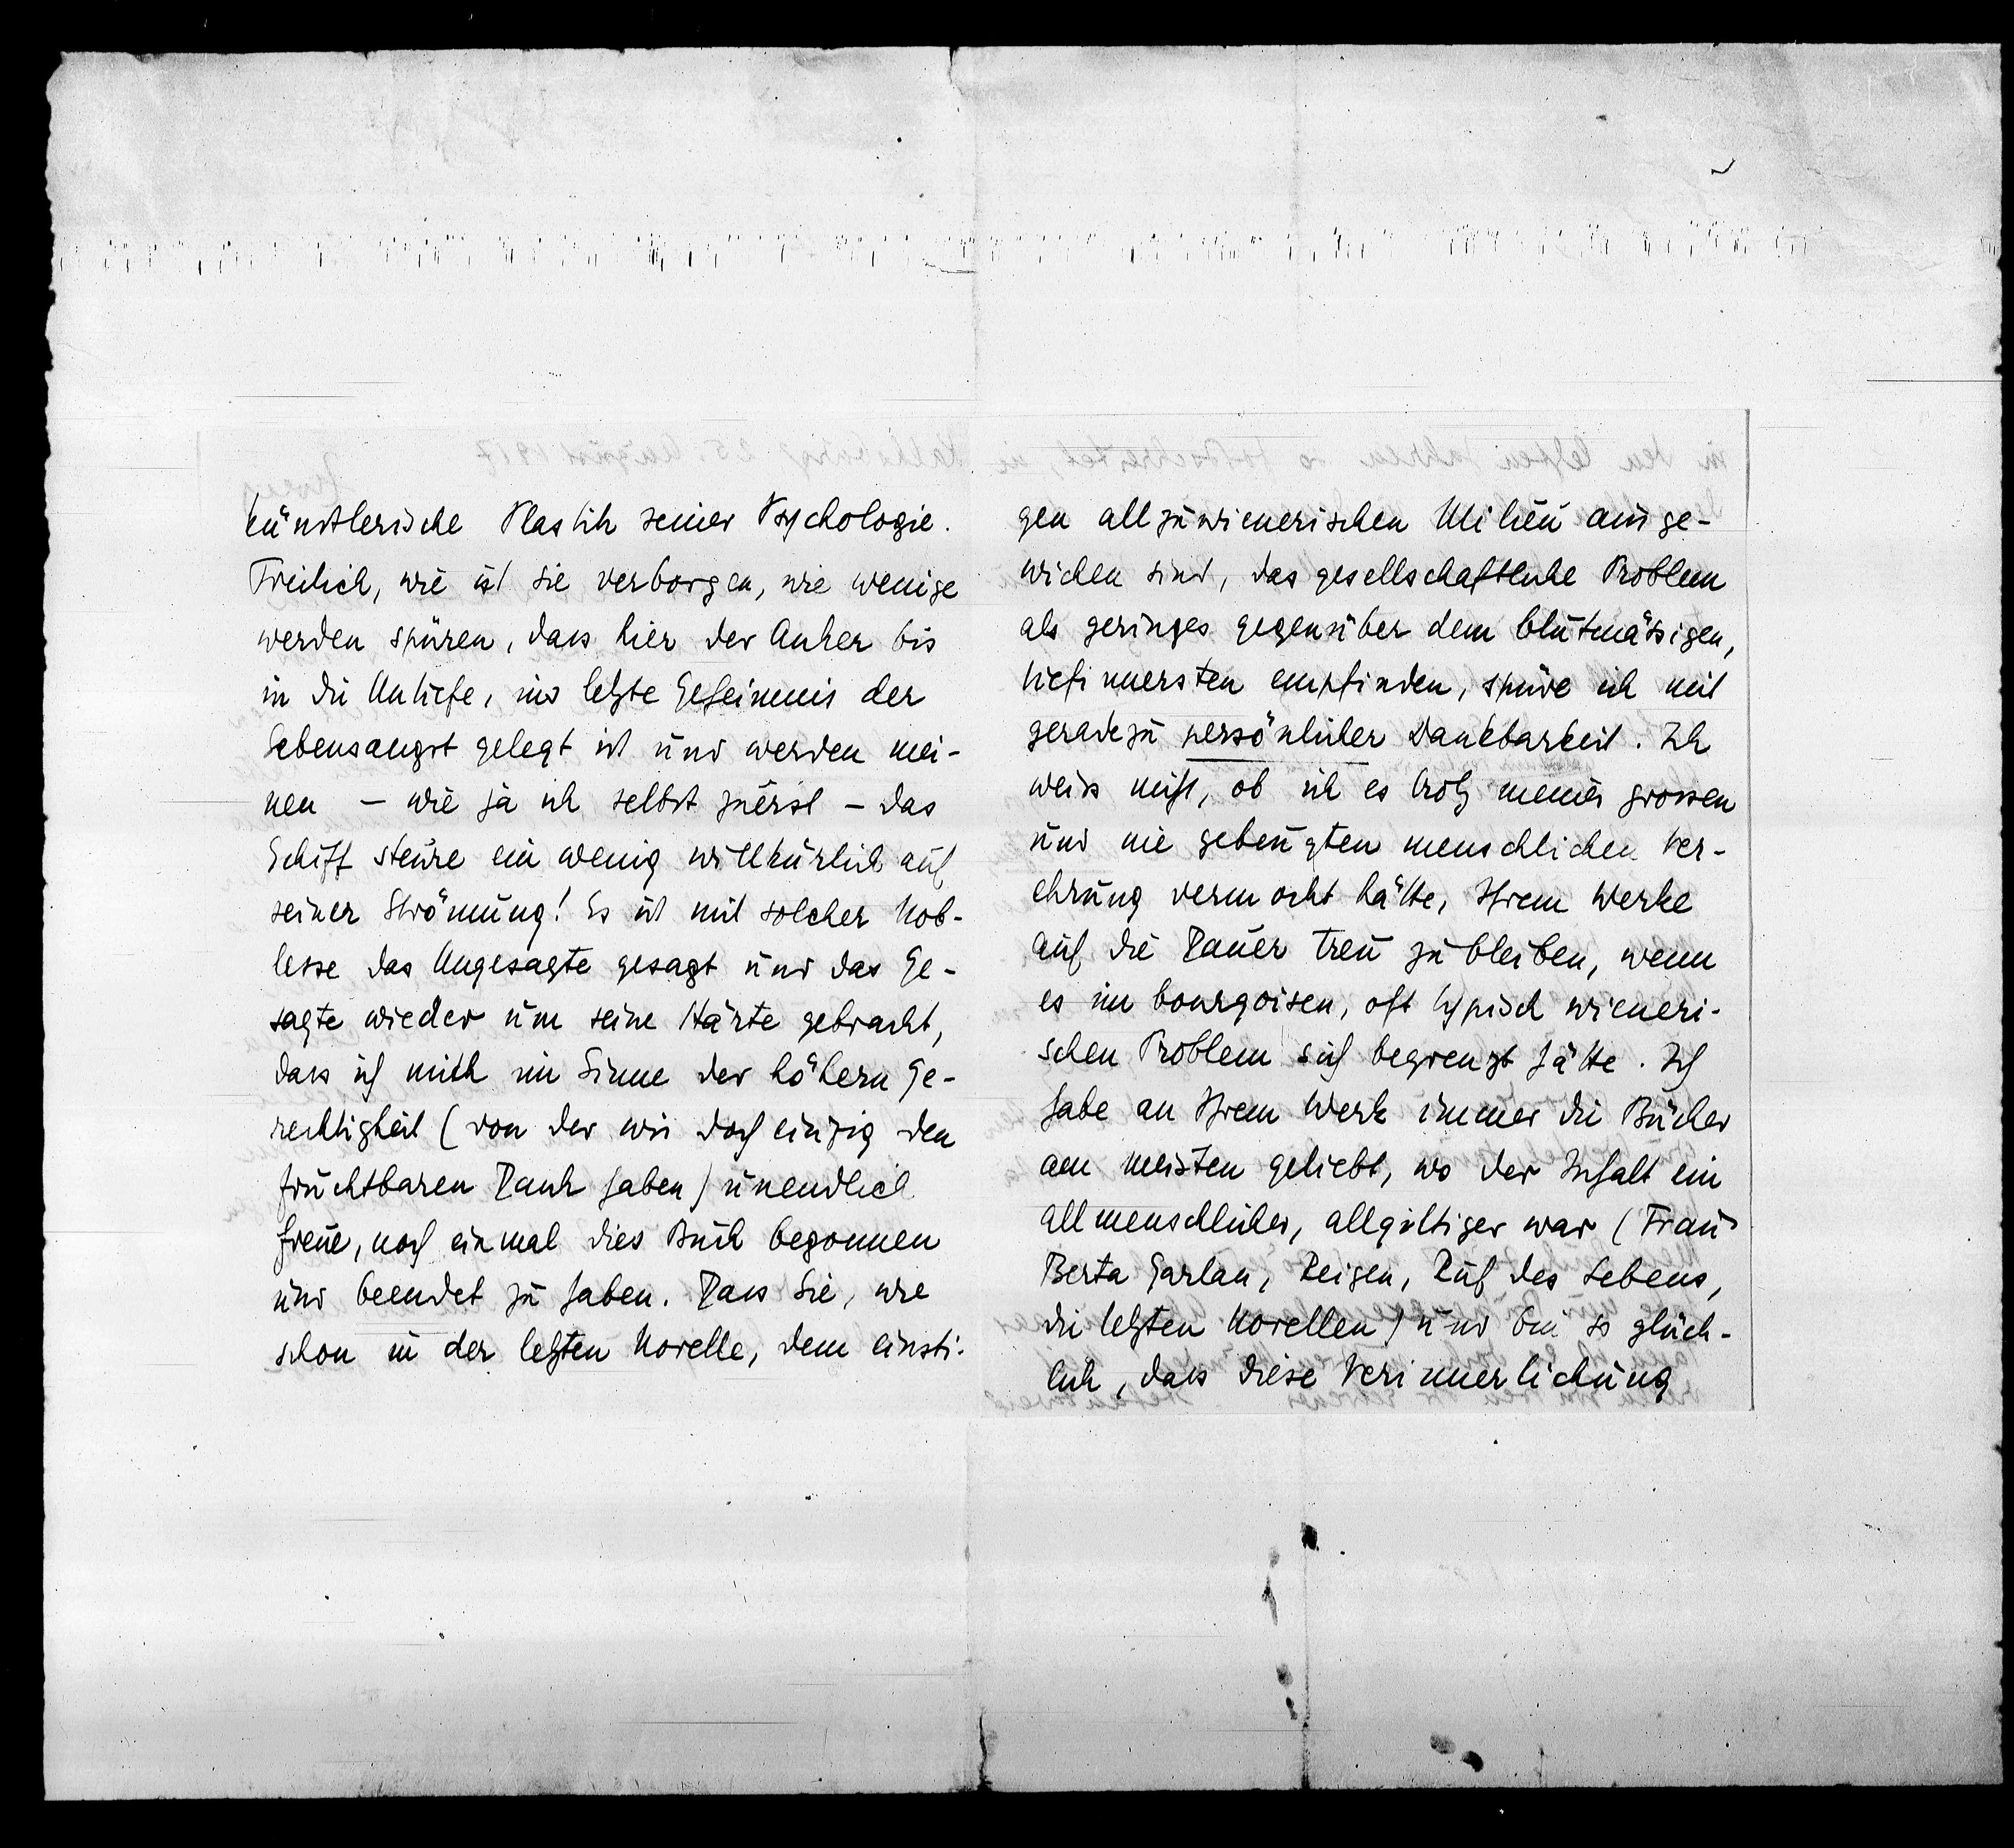 künstlerische Plastik seiner Psychologie.
Freilich, wie ist sie verborgen, wie wenige
werden spüren, dass hier der Anker bis
in die Untiefe, ins letzte Geheimnis der
Lebensangst gelegt ist und werden mei-
nen – wie ja ich selbst zuerst – das
Schiff steure ein wenig willkürlich auf
seiner Strömung! Es ist mit solcher Nob-
lesse das Ungesagte gesagt und das Ge-
sagte wieder um seine Härte gebracht,
dass ich mich im Sinne der höhern Ge-
rechtigkeit (von der wir doch einzig den
fruchtbaren Dank haben) unendlich
freue, noch einmal dies Buch begonnen
und beendet zu haben. Dass Sie, wie
schon in der letzten Novelle, dem einsti-
gen allzuwienerischen Milieu ausge-
wichen sind, das gesellschaftliche Problem
als geringes gegenüber dem blutmässigen,
tiefinnersten empfinden, spüre ich mit
geradezu persönlicher Dankbarkeit. Ich
weiss nicht, ob ich es trotz meiner grossen
und nie gebeugten menschlichen Ver-
ehrung vermocht hätte, Ihrem Werke
auf die Dauer treu zu bleiben, wenn
es im bourgoisen, oft typisch wieneri-
schen Problem sich begrenzt hätte. Ich
habe an Ihrem Werk immer die Bücher
am meisten geliebt, wo der Inhalt ein
allmenschlicher, allgültiger war (Frau
Berta Garlan, Reigen, Ruf des Lebens,
die letzten Novellen) und bin so glück-
lich, dass diese Verinnerlichung